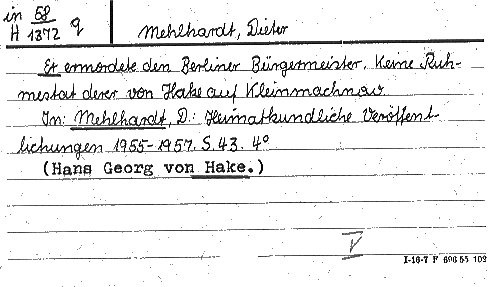 in 58 q
H 1372
Mehlhardt, Dieter
Er ermordete den Berliner Bürgermeister. Keine Ruh-
mestat derer von Hake auf Kleinmachnow
In: Mehlhardt, D.: Heimatkundliche Veröffent
lichungen 1955-1957. S. 43. 4°
(Hans Georg von Hake.)
V
I-16-7 F 696 55 109